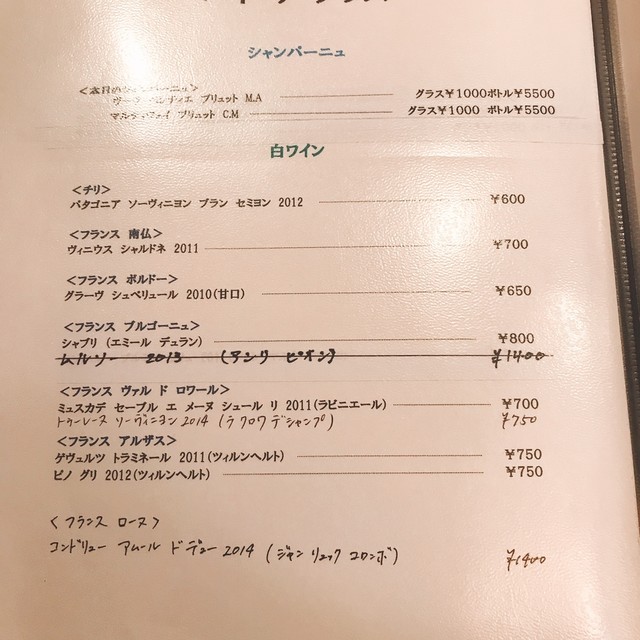 シャンパーニュ
ブリュット M.A グラス¥1000ボトル¥5500
ブリュット C.M グラス¥1000 ボトル¥5500
白ワイン
<チリ>
パタゴニア ソーヴィニヨン ブラン セミヨン 2012 ¥600
<フランス 南仏>
ヴィニウス シャルドネ 2011 ¥700
<フランス ボルドー>
グラーヴ シュペリュール 2010(甘口) ¥650
<フランス ブルゴーニュ>
シャブリ (エミール デュラン) ¥800
ムルソー 2013 ¥1400
<フランス ヴァル ド ロワール>
ミュスカデ セーブル エ メーヌ シュール リ 2011(ラビニエール) ¥700
トゥーレーヌ ソーヴィニヨン 2014 (ラ クロワ デシャンプ) ¥750
<フランス アルザス>
ゲヴェルツ トラミネール 2011(ツィルンヘルト) ¥750
ピノ グリ 2012(ツィルンヘルト) ¥750
<フランス ローヌ>
コンドリュー アムール ド デュー 2014 (ジャン リュック コロンボ) ¥1400